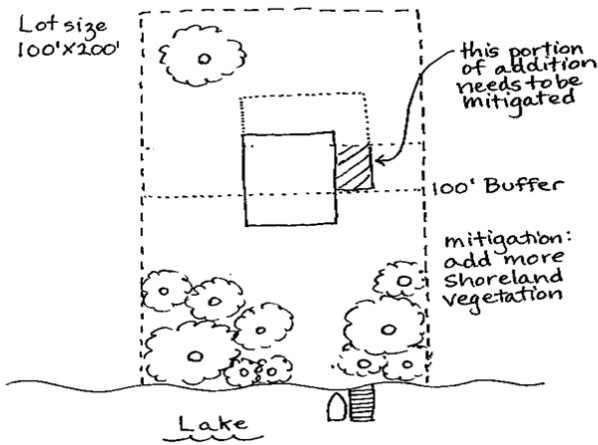 Lot size
100'X200'
this portion
of addition
needs to be
mitigated
100' Buffer
mitigation:
add more
shoreland
vegetation
Lake